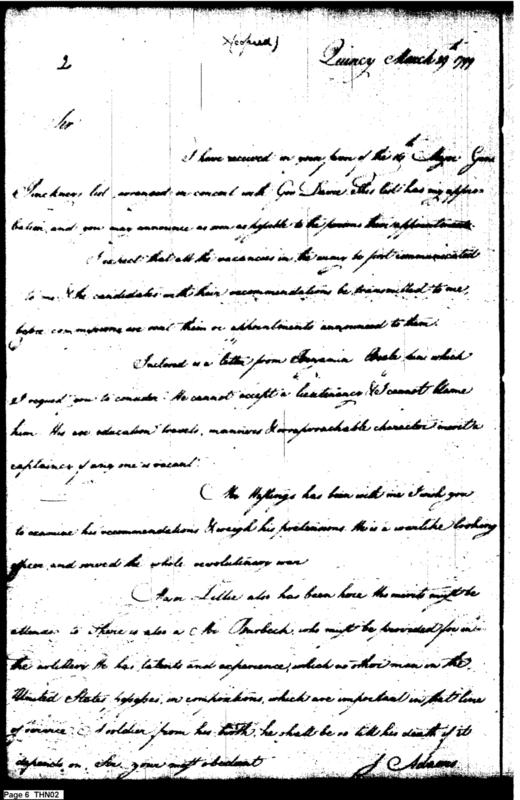 2
(copied)
Quincy March 29th 1799
Sir
I have received in your favor of the 14th Major Genl
Pinckneys list, arranged in concert with Gov Davie This list has my appro-
bation, and you may announce as soon as possible to the persons their appointments
I expect that all the vacancies in the army be first communicated
to me & the candidates with their recommendations be transmitted to me,
before commissions are sent them or appointments announced to them.
Inclosed is a letter from Benjamin Beale jun which
I request you to consider. He cannot accept a lieutenancy & I cannot blame
him His age education travels, manners & irreproachable character merit a
captaincy if any one is vacant
Mr Hastings has been with me I wish you
to examine his recommendations & weigh his pretensions He is a warlike looking
officer and served the whole revolutionary war
Lillie also has been here His merits must be
attended to There is also a Mr Burbeck, who must be provided for in
the artillery He has talents and experience, which no other man in the
United States possesses, in compositions, which are important in that line
of service A soldier from his birth, he shall be so till his death if it
depends on Sir your most obedient
J Adams
Page 6 THN02